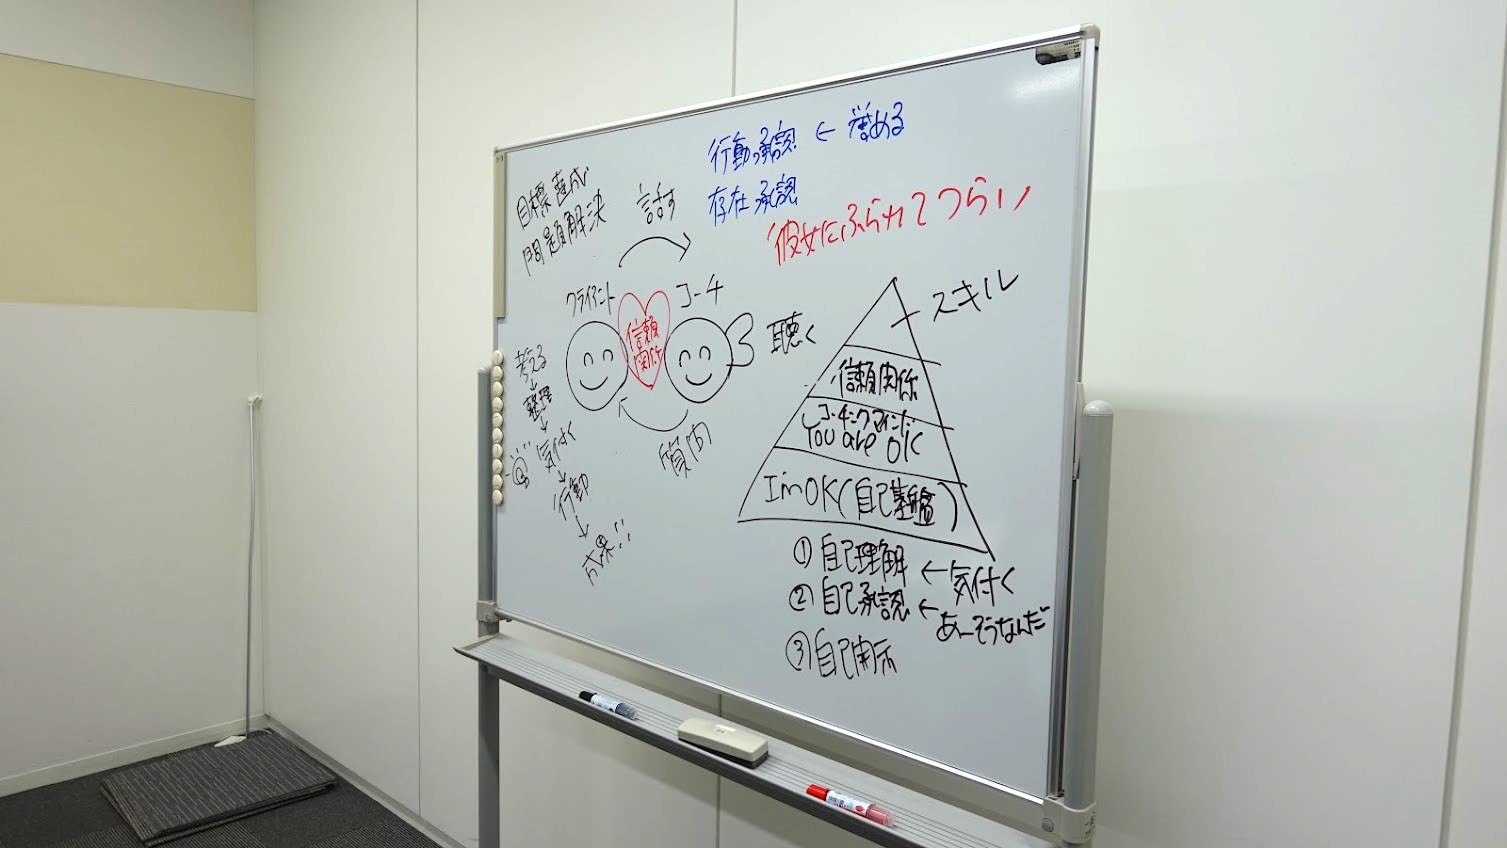 目標達成
問題解決
話す
行動承認 ← 誉める
存在承認
彼女にふられてつらい
クライアント
信頼
関係
コーチ
聴く
質問
考える
↓
整理
↓
気付く
↓
行動
↓
成果!!
スキル
信頼関係
コーチングマインド
You are OK
I'm OK(自己基盤)
① 自己理解 ← 気付く
② 自己承認 ← あーそうなんだ
③ 自己開示